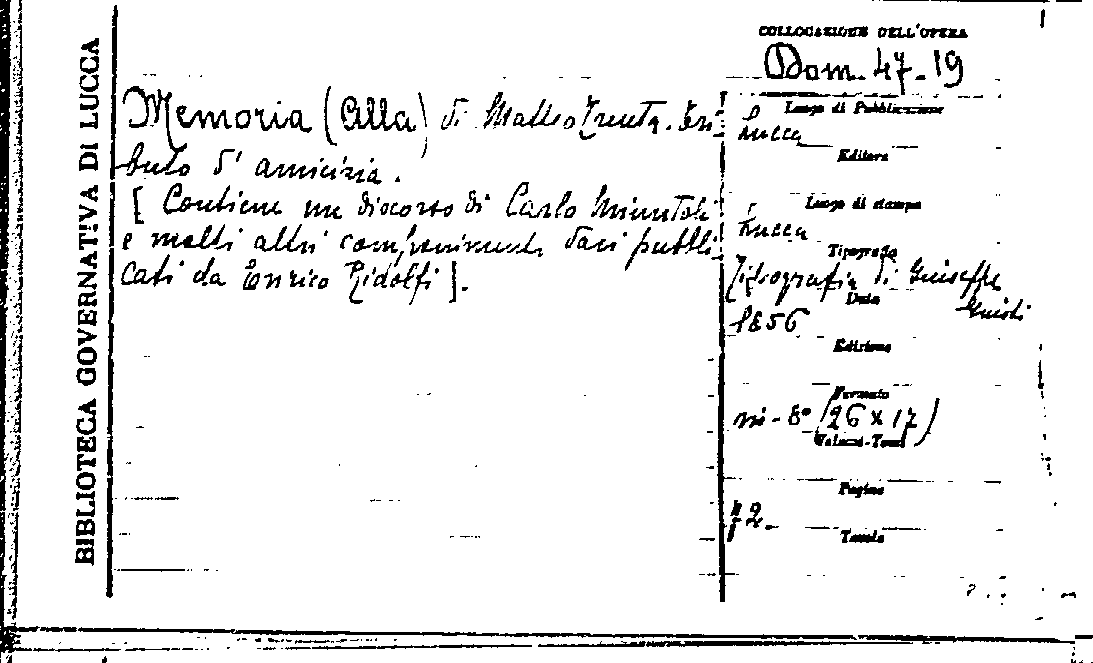 BIBLIOTECA GOVERNATIVA DI LUCCA
COLLOCAZIONE DELL'OPERA
Dom. 47-19
Memoria (Alla) di Matteo Trenta. Tri-
buto d'amicizia.
[ Contiene un discorso di Carlo Minutoli
e molti altri componimenti vari pubbli-
cati da Enrico Ridolfi ].
Luogo di Pubblicazione
Lucca
Editore
Luogo di stampa
Lucca
Tipografo
Tipografia di Giuseppe
Giusti
Data
1856
Edizione
Formato
in-8° (26 x 17)
Volumi-Tomi
Pagine
72-
Tavole